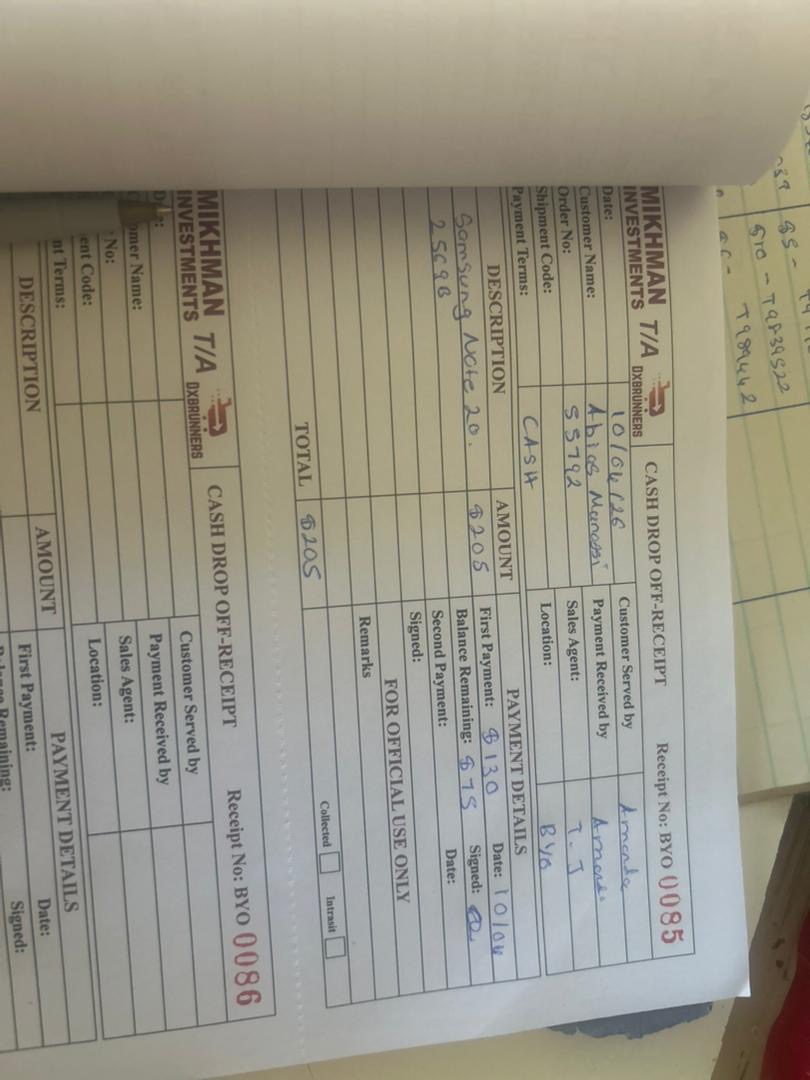 MIKHMAN T/A DXBRUNNERS
INVESTMENTS
CASH DROP OFF-RECEIPT
Receipt No: BYO 0085
Date: 10/04/26
Customer Served by Amanda
Customer Name: Abias Manassi
Payment Received by Amanda
Order No: 55792
Sales Agent: T.J
Shipment Code:
Location: BYO
Payment Terms: CASH
DESCRIPTION AMOUNT PAYMENT DETAILS
Samsung Note 20. $205
First Payment: $130 Date: 10/04
256GB
Balance Remaining: $75 Signed:
Second Payment: Date:
Signed:
FOR OFFICIAL USE ONLY
Remarks
TOTAL $205
Collected Intrasit
MIKHMAN T/A DXBRUNNERS
INVESTMENTS
CASH DROP OFF-RECEIPT
Receipt No: BYO 0086
Customer Served by
omer Name:
Payment Received by
No:
Sales Agent:
ent Code:
Location:
nt Terms:
DESCRIPTION AMOUNT PAYMENT DETAILS
First Payment: Date:
Remaining: Signed:
$5 -
$10 - T9839522
T989442